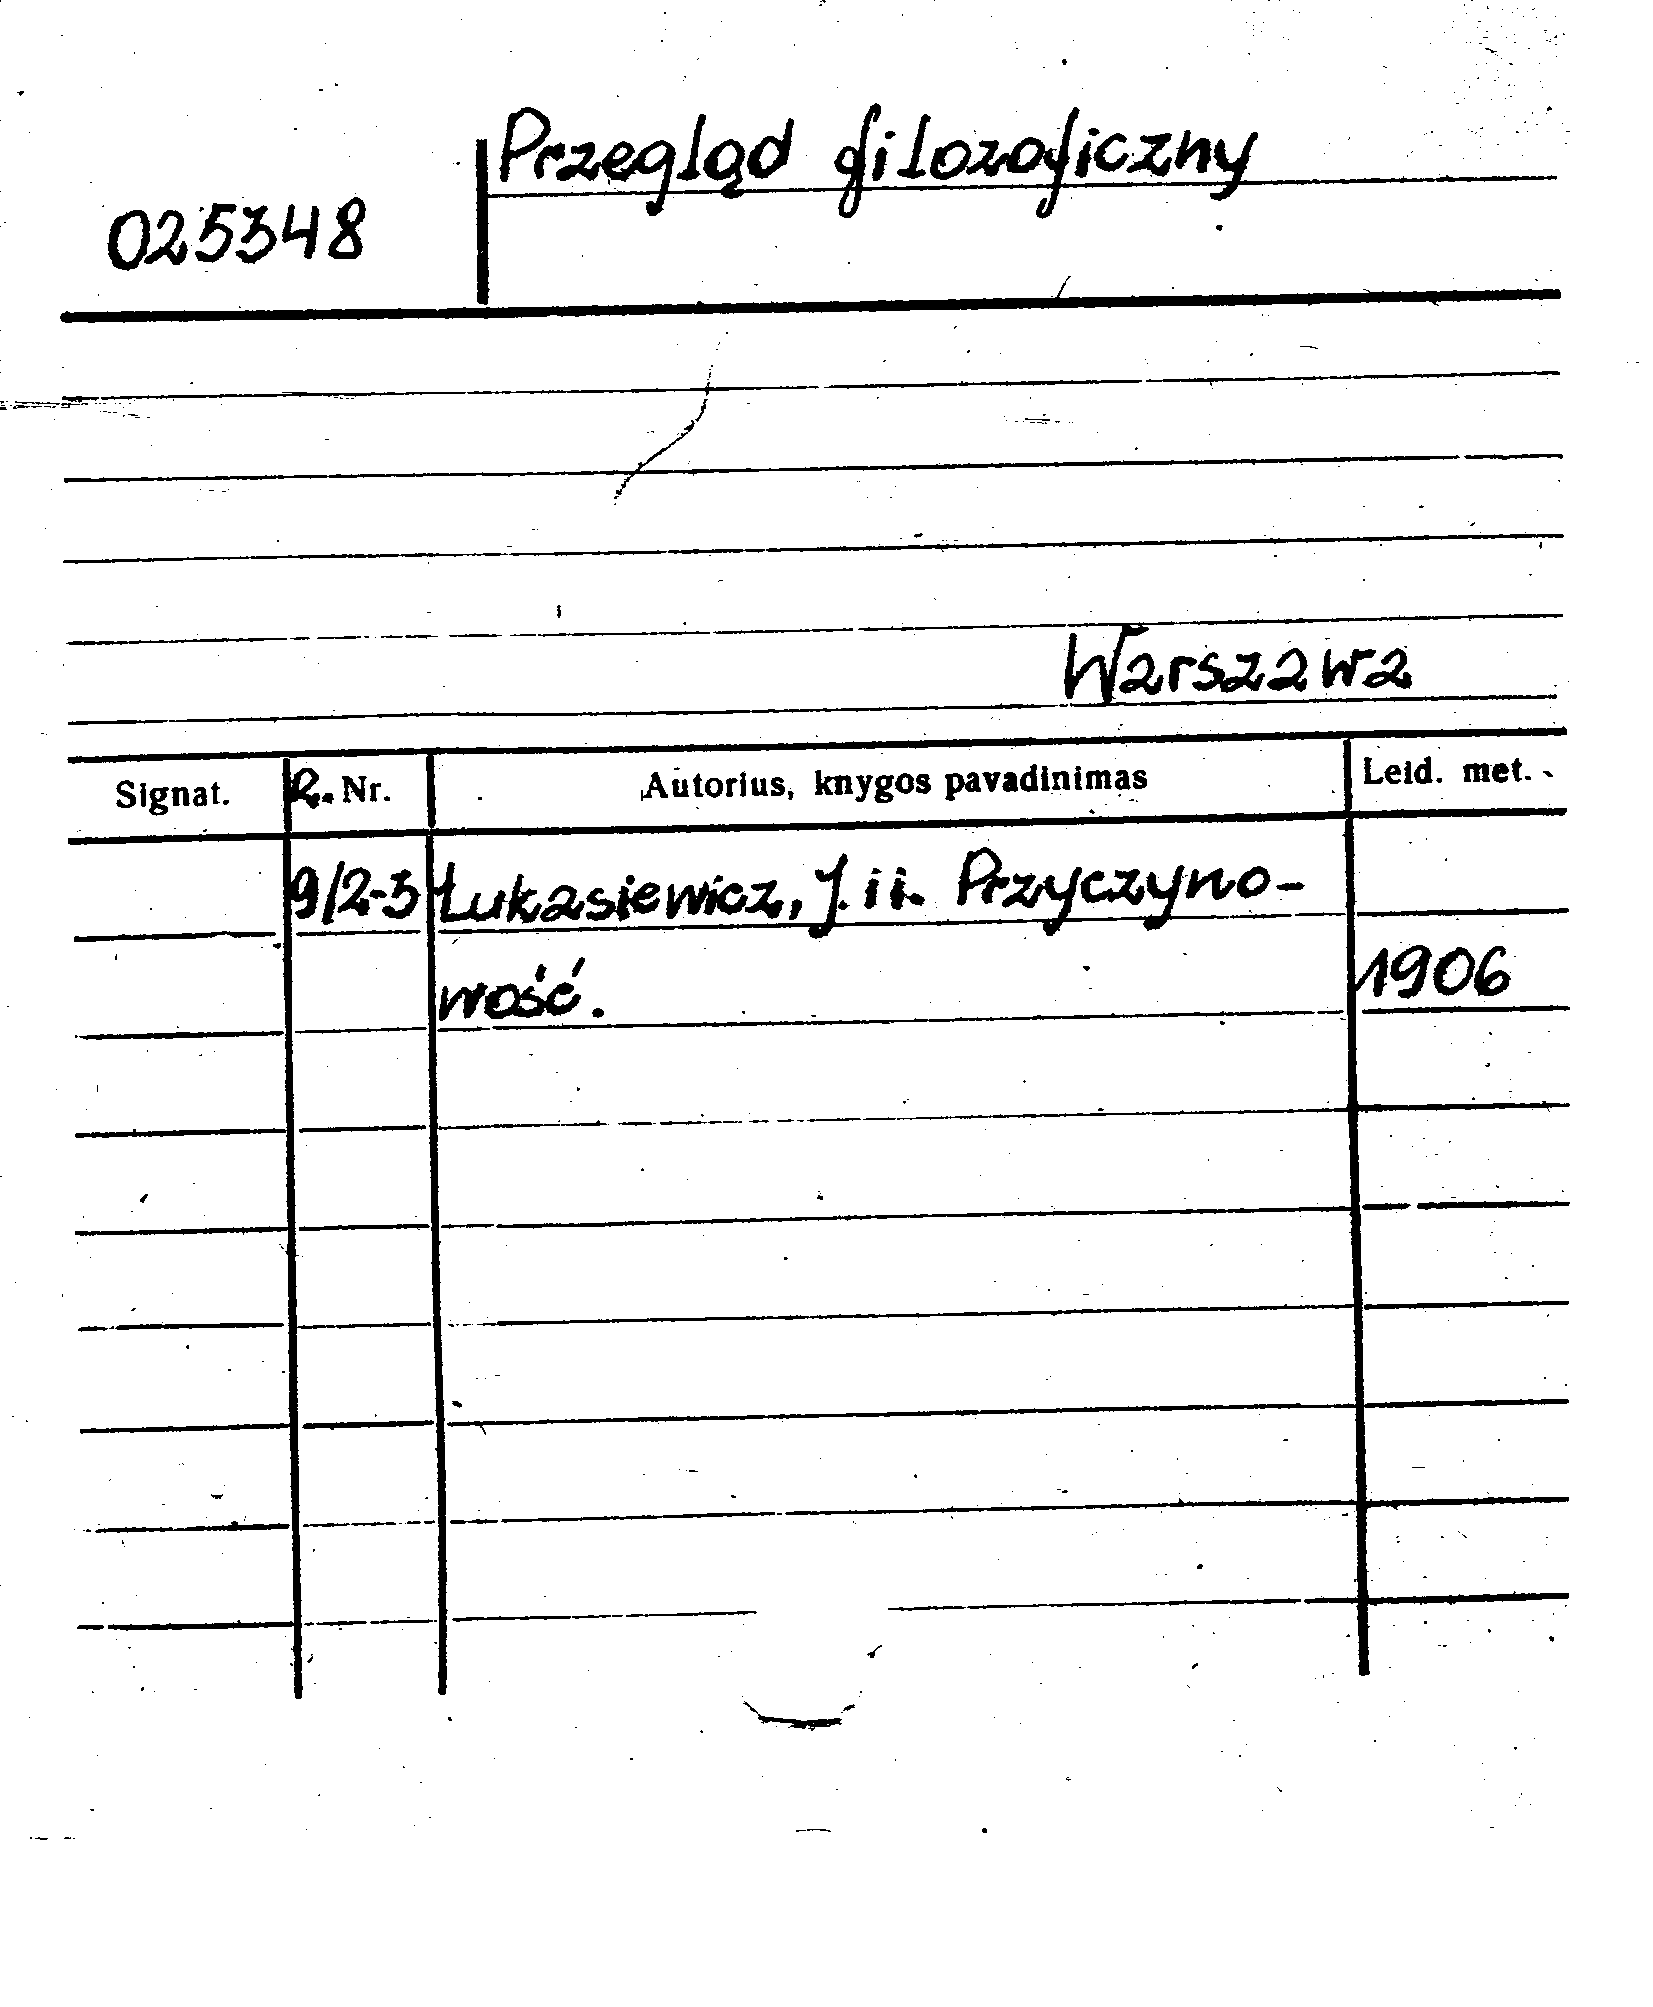 Przegląd filozoficzny
025348
Warszawa
Signat. R. Nr. Autorius, knygos pavadinimas Leid. met.
9/2-3 Łukasiewicz, J. i i. Przyczyno-
wość. 1906